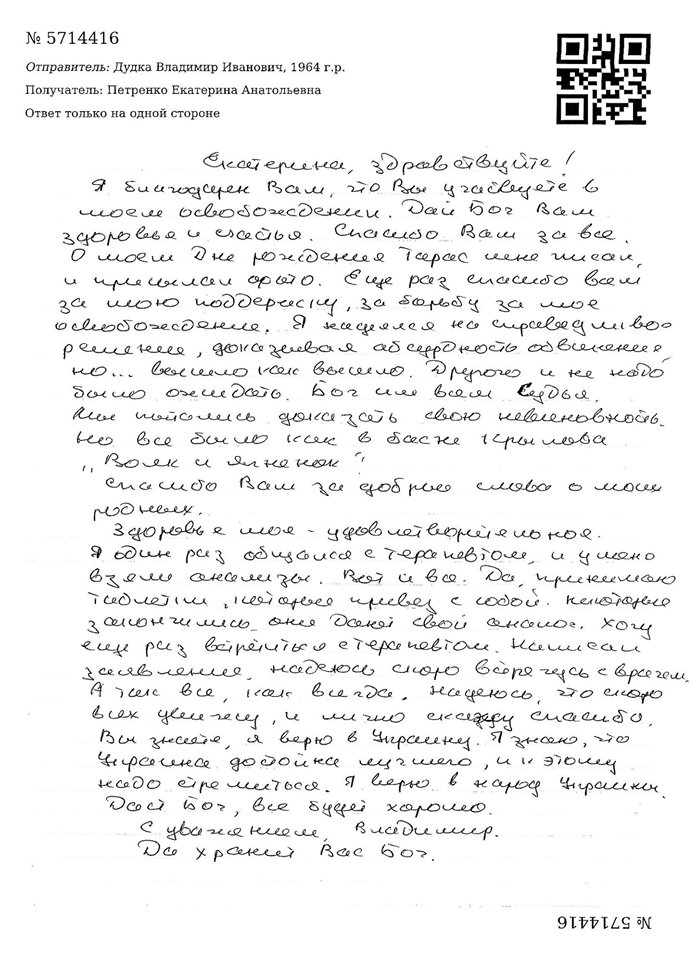 № 5714416
Отправитель: Дудка Владимир Иванович, 1964 г.р.
Получатель: Петренко Екатерина Анатольевна
Ответ только на одной стороне
Екатерина, здравствуйте!
Я благодарен Вам, что Вы участвуете в
моем освобождении. Дай Бог Вам
здоровья и счастья. Спасибо Вам за все.
О моем Дне рождения Тарас мне писал,
и присылал фото. Еще раз спасибо Вам
за мою поддержку, за борьбу за мое
освобождение. Я надеялся на справедливое
решение, доказывая абсурдность обвинения,
но... вышло как вышло. Другого и не надо
было ожидать. Бог им всем судья.
Мы пытались доказать свою невиновность.
Но все было как в басне Крылова
„Волк и ягненок"
Спасибо Вам за добрые слова о моих
родных.
Здоровье мое - удовлетворительное.
Я один раз общался с терапевтом, и у меня
взяли анализы. Вот и все. Да, принимаю
таблетки, которые привез с собой. Некоторые
закончились, они дают свой аналог. Хочу
еще раз встретиться с терапевтом. Написал
заявление, надеюсь скоро встречусь с врачем.
А так все, как всегда. Надеюсь, что скоро
всех увижу, и лично скажу спасибо.
Вы знаете, я верю в Украину. Я знаю, что
Украина достойна лучшего, и к этому
надо стремиться. Я верю в народ Украины.
Даст Бог, все будет хорошо.
С уважением, Владимир.
Да хранит Вас Бог.
№ 5714416